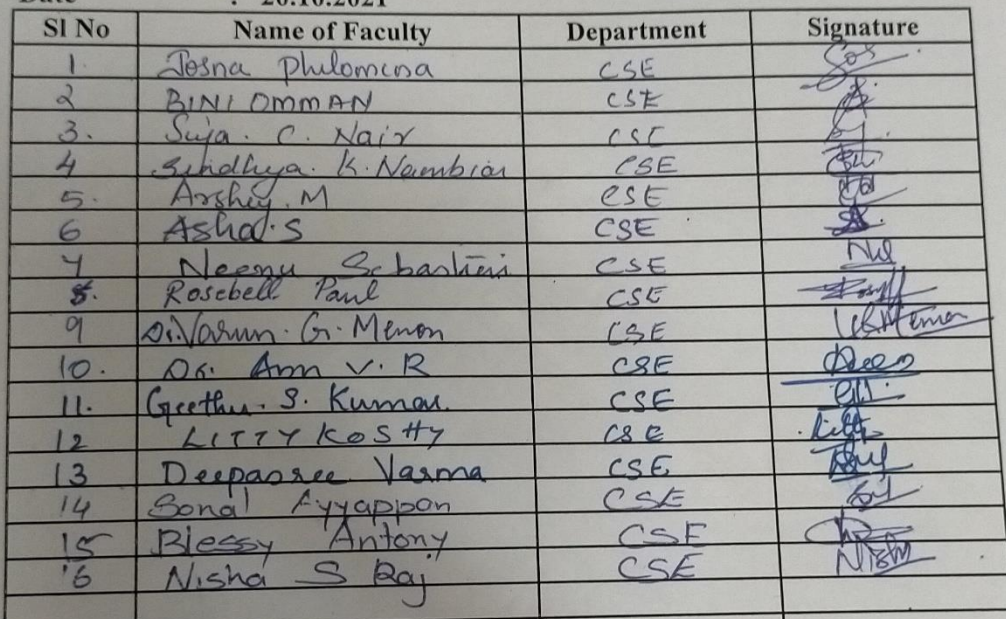 : 20.10.2021
Sl No Name of Faculty Department Signature
1. Josna Philomina CSE
2 BINI OMMAN CSE
3. Suja. C. Nair CSE
4 Sindhya. K. Nambiar CSE
5. Arshey. M CSE
6 Asha.S CSE
7 Neenu Sebastian CSE
8. Rosebell Paul CSE
9 Dr.Varun. G. Menon CSE
10. Dr. Ann V. R CSE
11. Geethu. S. Kumar. CSE
12 LITTY KOSHY CSE
13 Deepasree Varma CSE
14 Sonal Ayyappan CSE
15 Blessy Antony CSE
16 Nisha S Raj CSE